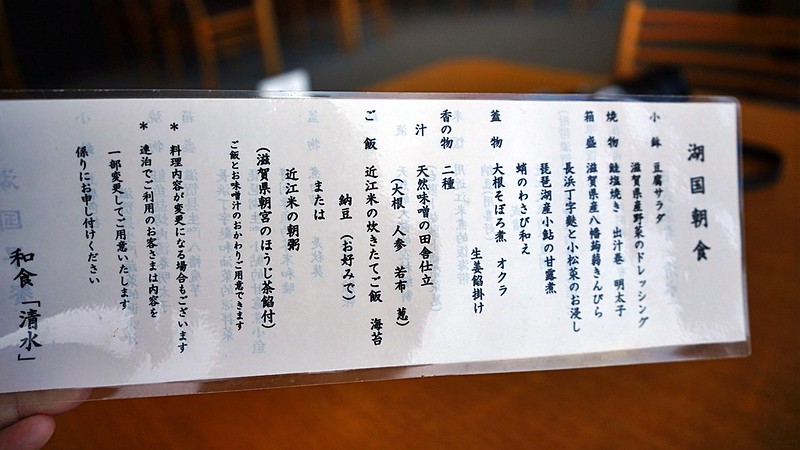 湖国朝食
小鉢 豆腐サラダ
滋賀県産野菜のドレッシング
焼物 鮭塩焼き 出汁巻 明太子
箱盛 滋賀県産八幡蒟蒻きんぴら
長浜丁字麩と小松菜のお浸し
琵琶湖産小鮎の甘露煮
蛸のわさび和え
蓋物 大根そぼろ煮 オクラ
生姜餡掛け
香の物 二種
汁 天然味噌の田舎仕立
(大根 人参 若布 葱)
ご飯 近江米の炊きたてご飯 海苔
納豆 (お好みで)
または
近江米の朝粥
(滋賀県朝宮のほうじ茶餡付)
ご飯とお味噌汁のおかわりご用意できます
* 料理内容が変更になる場合もございます
* 連泊でご利用のお客さまは内容を
一部変更してご用意いたします
係りにお申し付けください
和食「清水」